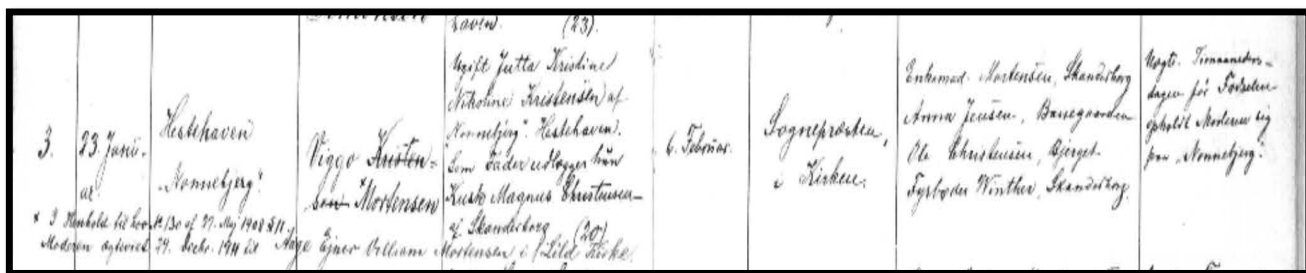 (23).
3.
23. Janu-
ar
Hestehaven
"Nonnebjerg".
Viggo Kristen-
sen
* Mortensen
Ugift Jutta Kristine
Nikoline Kristensen af
"Nonnebjerg". Hestehaven.
Som Fader udlægger hun
Kusk Magnus Christensen
af Skanderborg (20)
6. Februar.
Sognepræsten,
i Kirken.
Enkemad. Mortensen, Skanderborg
Anna Jensen, Banegaarden
Ole Christensen, Bjerget
Fyrbøder Winther, Skanderborg
Ugift. Timaaneders-
dagen før Fødselen
opholdt Moderen sig
paa "Nonnebjerg".
* I Henhold til Lov Nr 130 af 27. Maj 1908 § 11
Moderen ægteviet 29. Decbr. 1911 til Aage Ejner Villiam Mortensen i Lild Kirke.